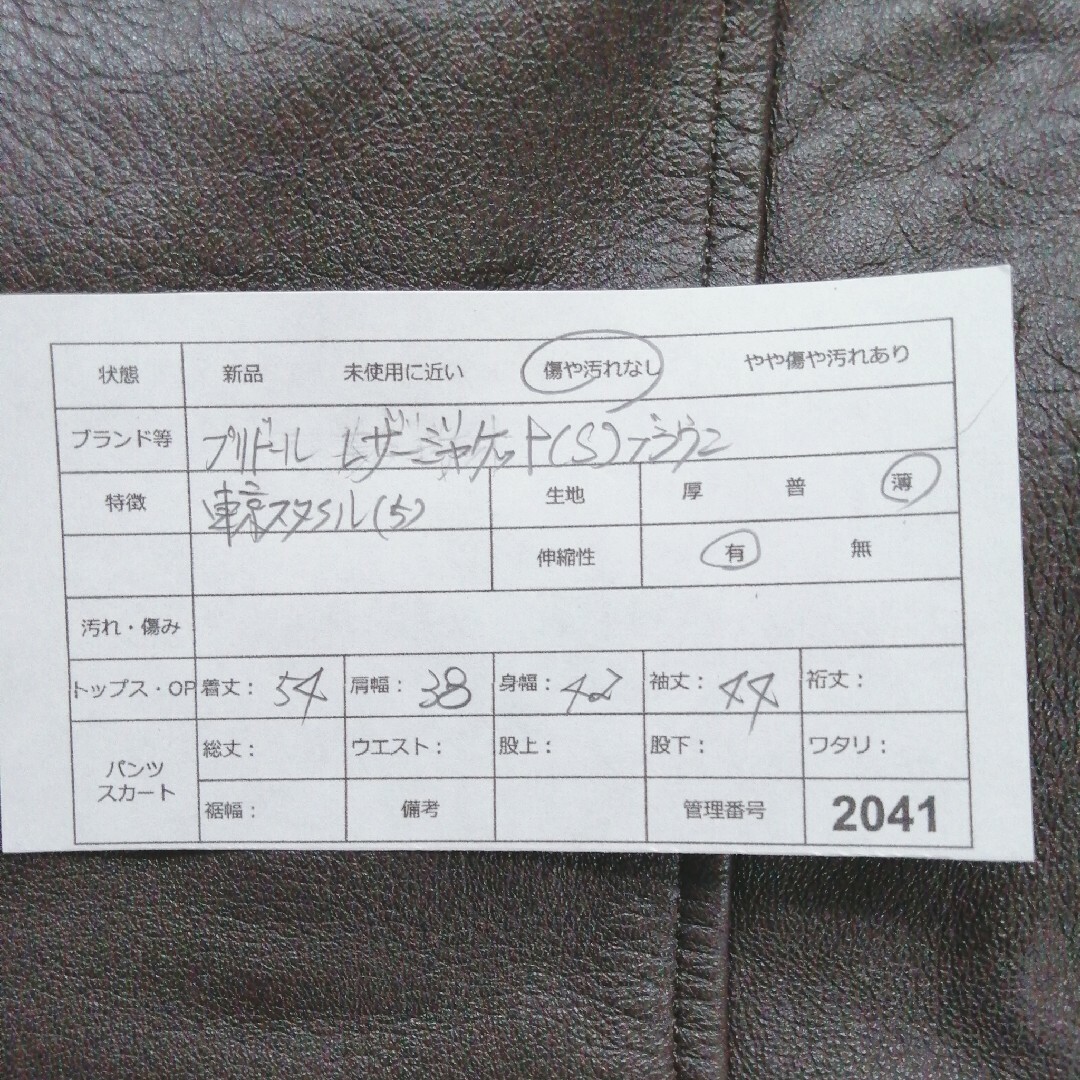 状態 新品 未使用に近い 傷や汚れなし やや傷や汚れあり
ブランド等 プリドール レザージャケット(S)ブラウン
特徴 東京スタイル(5) 生地 厚 普 薄
伸縮性 有 無
汚れ・傷み
トップス・OP 着丈: 54 肩幅: 38 身幅: 42 袖丈: 44 裄丈:
パンツ スカート 総丈: ウエスト: 股上: 股下: ワタリ:
裾幅: 備考 管理番号 2041